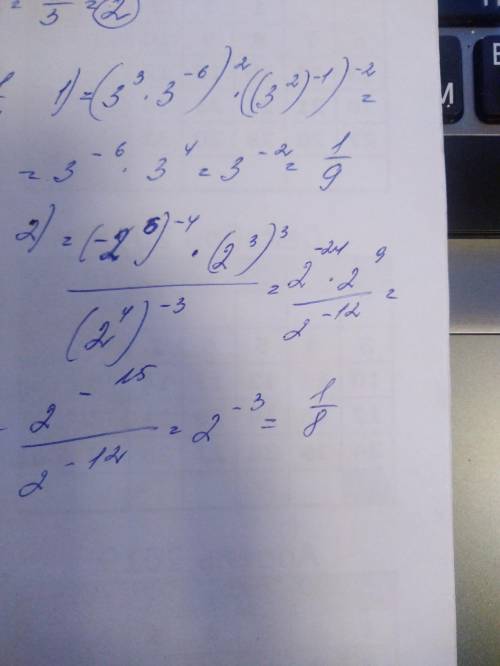 = /3 = 2
1) = (3³ · 3⁻⁶)² · ((3²)⁻¹)⁻² =
= 3⁻⁶ · 3⁴ = 3⁻² = 1/9
2) = (-2⁶)⁻⁴ · (2³)³ / (2⁴)⁻³ = 2⁻²⁴ · 2⁹ / 2⁻¹² =
2⁻¹⁵ / 2⁻¹² = 2⁻³ = 1/8